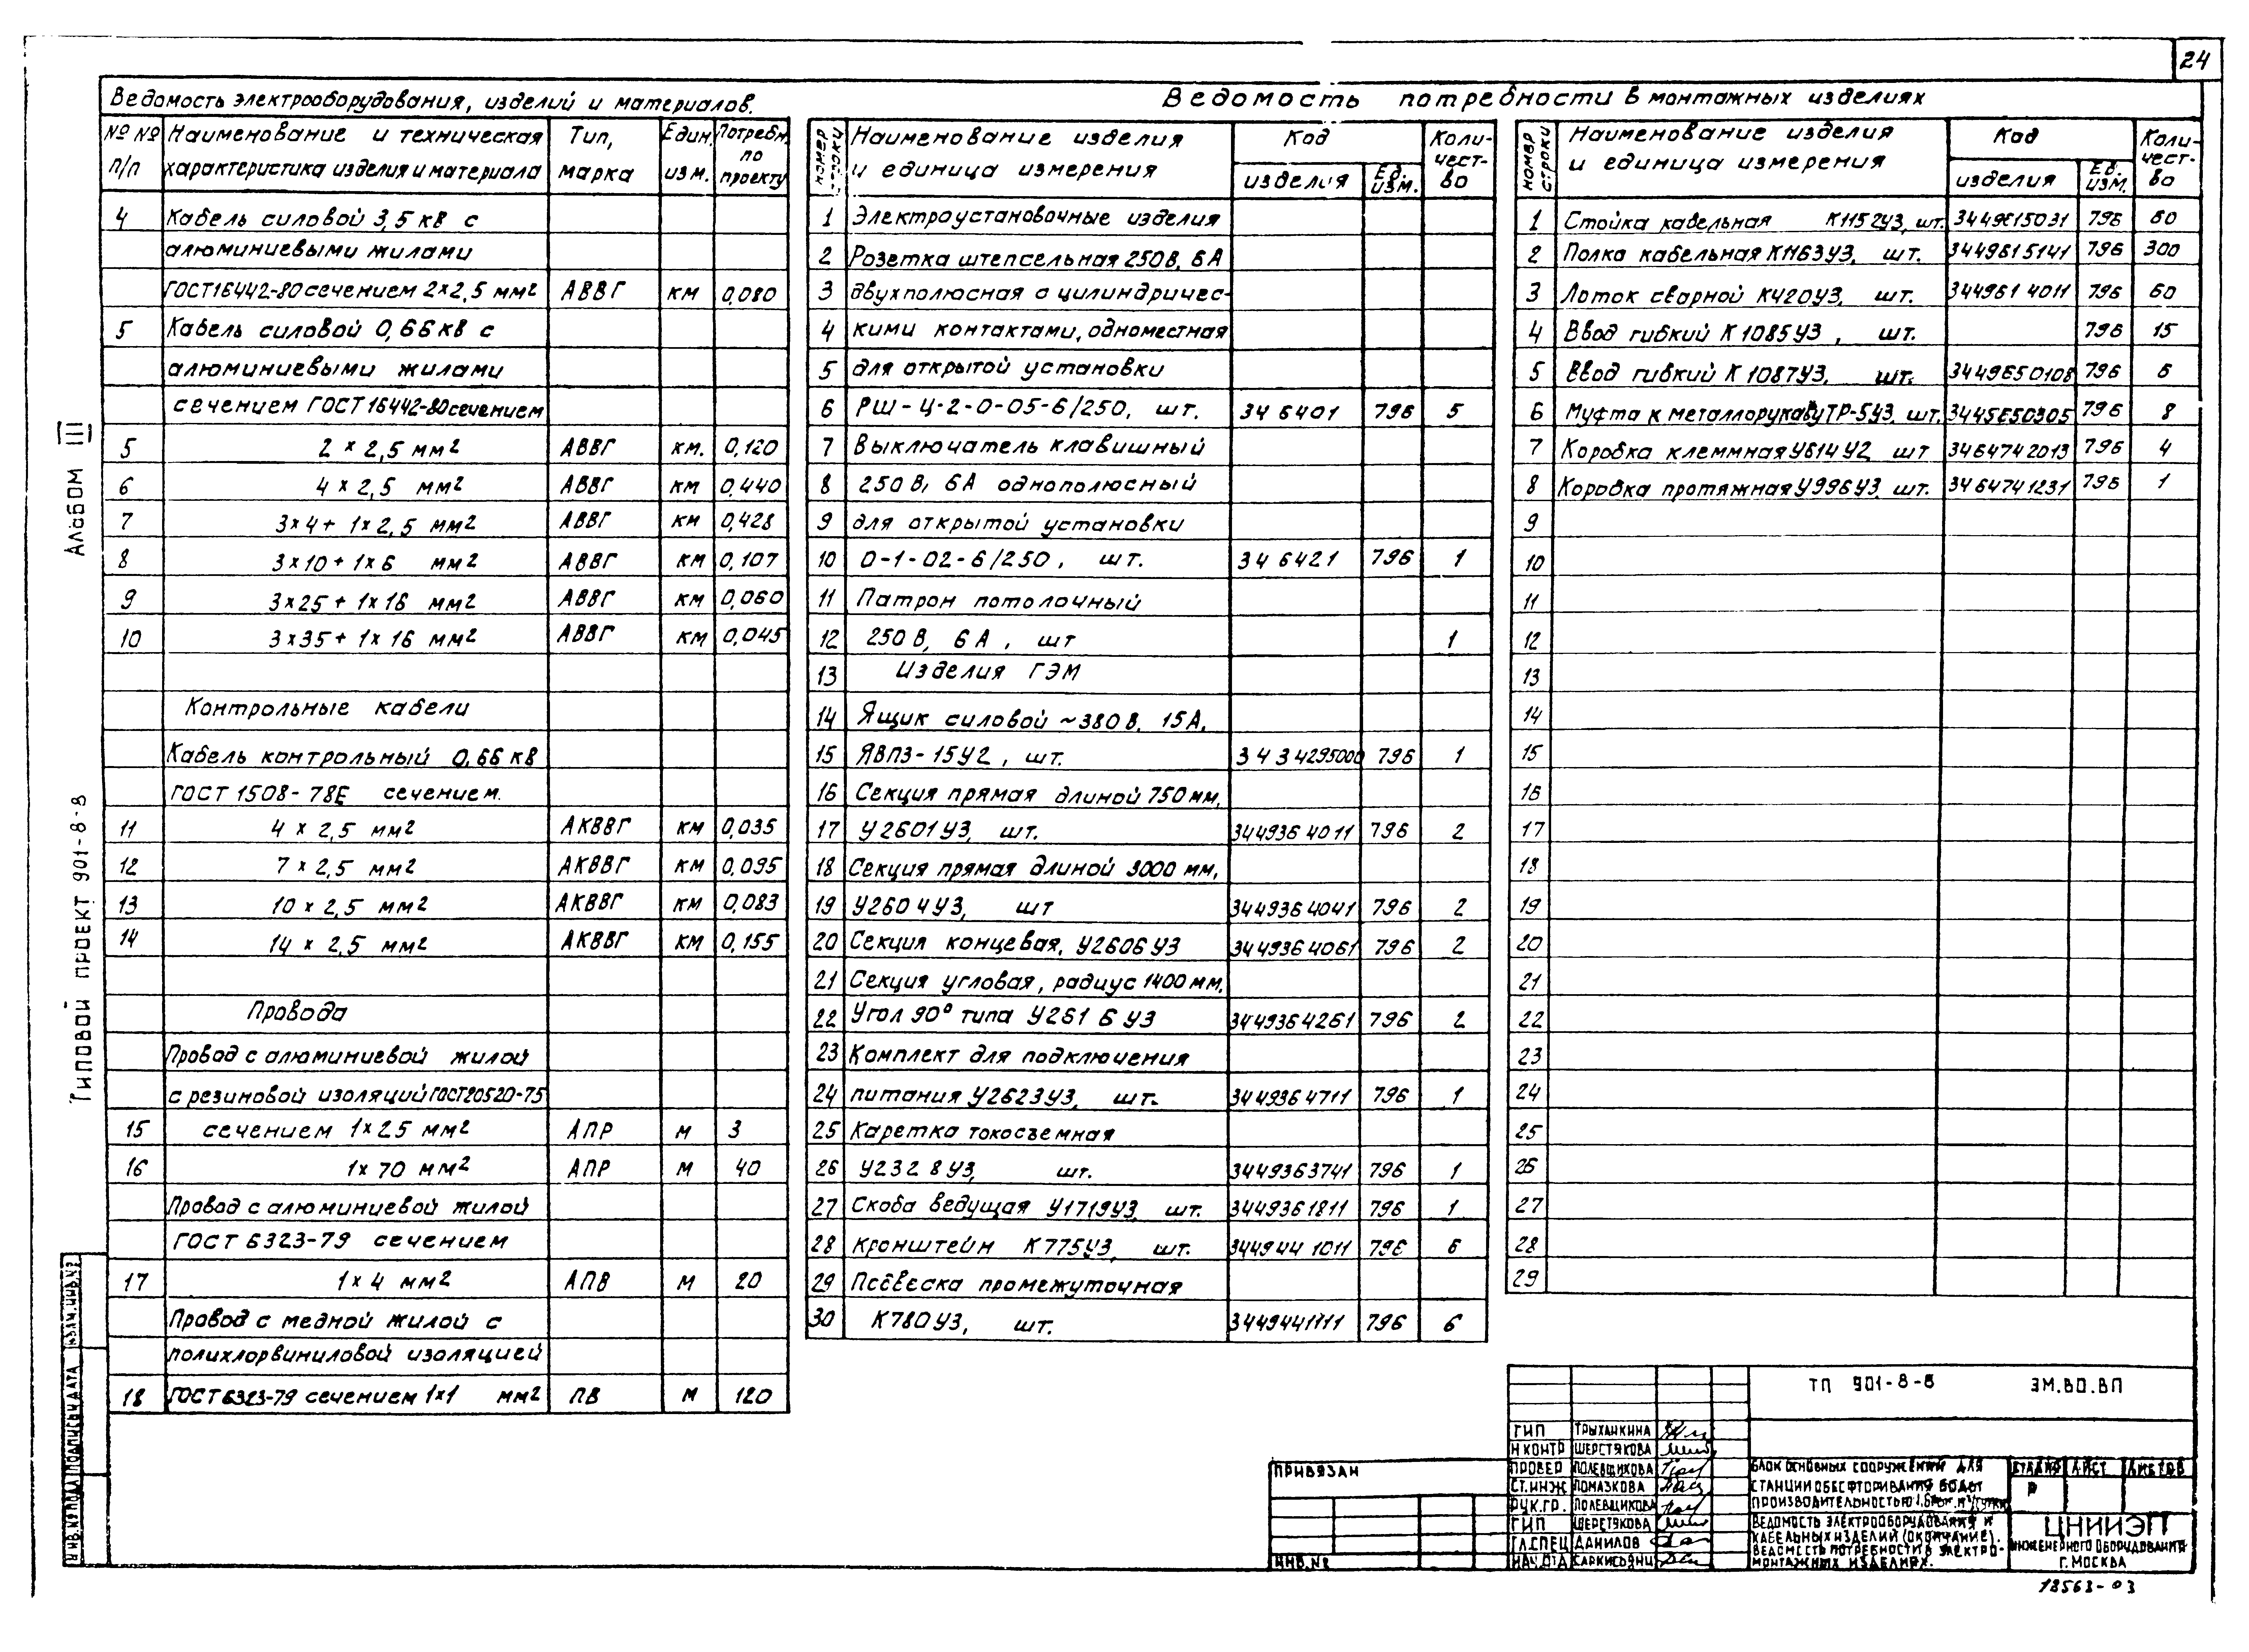 24
Ведомость электрооборудования, изделий и материалов.
№№ п/п | Наименование и техническая характеристика изделия и материала | Тип, марка | Един. изм. | Потребн. по проекту
4 | Кабель силовой 3,5 кв с
алюминиевыми жилами
ГОСТ16442-80 сечением 2×2,5 мм2 | АВВГ | км | 0,080
5 | Кабель силовой 0,66 кв с
алюминиевыми жилами
сечением ГОСТ 16442-80 сечением
5 | 2 × 2,5 мм2 | АВВГ | км. | 0,120
6 | 4 × 2,5 мм2 | АВВГ | км | 0,440
7 | 3×4 + 1×2,5 мм2 | АВВГ | км | 0,428
8 | 3×10 + 1×6 мм2 | АВВГ | км | 0,107
9 | 3×25 + 1×16 мм2 | АВВГ | км | 0,060
10 | 3×35 + 1×16 мм2 | АВВГ | км | 0,045
Контрольные кабели
Кабель контрольный 0,66 кв
ГОСТ 1508-78Е сечением.
11 | 4 × 2,5 мм2 | АКВВГ | км | 0,035
12 | 7 × 2,5 мм2 | АКВВГ | км | 0,095
13 | 10 × 2,5 мм2 | АКВВГ | км | 0,083
14 | 14 × 2,5 мм2 | АКВВГ | км | 0,155
Провода
Провод с алюминиевой жилой
с резиновой изоляций ГОСТ20520-75
15 | сечением 1×25 мм2 | АПР | м | 3
16 | 1×70 мм2 | АПР | м | 40
Провод с алюминиевой жилой
ГОСТ 6323-79 сечением
17 | 1×4 мм2 | АПВ | м | 20
Провод с медной жилой с
полихлорвиниловой изоляцией
18 | ГОСТ6323-79 сечением 1×1 мм2 | ПВ | м | 120
Ведомость потребности в монтажных изделиях
Номер строки | Наименование изделия и единица измерения | Код изделия | Ед. изм. | Количество
1 | Электроустановочные изделия
2 | Розетка штепсельная 250В, 6А
3 | двухполюсная с цилиндричес-
4 | кими контактами, одноместная
5 | для открытой установки
6 | РШ-Ц-2-0-05-6/250, шт. | 34 6401 | 796 | 5
7 | Выключатель клавишный
8 | 250 В, 6А однополюсный
9 | для открытой установки
10 | 0-1-02-6/250, шт. | 34 6421 | 796 | 1
11 | Патрон потолочный
12 | 250 В, 6А, шт | 1
13 | Изделия ГЭМ
14 | Ящик силовой ~380 В, 15А,
15 | ЯВПЗ-15У2, шт. | 3434295000 | 796 | 1
16 | Секция прямая длиной 750 мм,
17 | У2601У3, шт. | 3449364011 | 796 | 2
18 | Секция прямая длиной 3000 мм,
19 | У2604У3, шт | 3449364041 | 796 | 2
20 | Секция концевая, У2606У3 | 3449364061 | 796 | 2
21 | Секция угловая, радиус 1400 мм,
22 | Угол 90° типа У2616У3 | 3449364261 | 796 | 2
23 | Комплект для подключения
24 | питания У2623У3, шт. | 3449364711 | 796 | 1
25 | Каретка токосъемная
26 | У2328У3, шт. | 3449363741 | 796 | 1
27 | Скоба ведущая У1719У3, шт. | 3449361811 | 796 | 1
28 | Кронштейн К775У3, шт. | 3449441011 | 796 | 6
29 | Подвеска промежуточная
30 | К780У3, шт. | 3449441111 | 796 | 6
Номер строки | Наименование изделия и единица измерения | Код изделия | Ед. изм. | Количество
1 | Стойка кабельная К1152У3, шт. | 3449615031 | 796 | 60
2 | Полка кабельная К1163У3, шт. | 3449615141 | 796 | 300
3 | Лоток сварной К420У3, шт. | 3449614011 | 796 | 60
4 | Ввод гибкий К1085У3, шт. | 796 | 15
5 | Ввод гибкий К1087У3, шт. | 3449650108 | 796 | 6
6 | Муфта к металлорукаву ТР-5У3, шт. | 3445650305 | 796 | 8
7 | Коробка клеммная У614У2 шт | 3464742013 | 796 | 4
8 | Коробка протяжная У996У3, шт. | 3464741231 | 796 | 1
9
10
11
12
13
14
15
16
17
18
19
20
21
22
23
24
25
26
27
28
29
Альбом III
Типовой проект 901-8-8
Инв.№ подл. Подпись и дата Взам.инв.№
Привязан
Инв.№
ТП 901-8-8 ЭМ.ВО.ВП
ГИП Трыханкина
Н контр Шерстякова
Провер Полевщикова
Ст.инж Помазкова
Рук.гр. Полевщикова
ГИП Шерстякова
Гл.спец Данилов
Нач.отд Саркисьянц
Блок основных сооружений для
станции обесфторивания воды
производительностью
Ведомость электрооборудования и
кабельных изделий (окончание).
Ведомость потребности в электро-
монтажных изделиях.
Стадия Лист Листов
Р
ЦНИИЭП
инженерного оборудования
г. Москва
18563-03